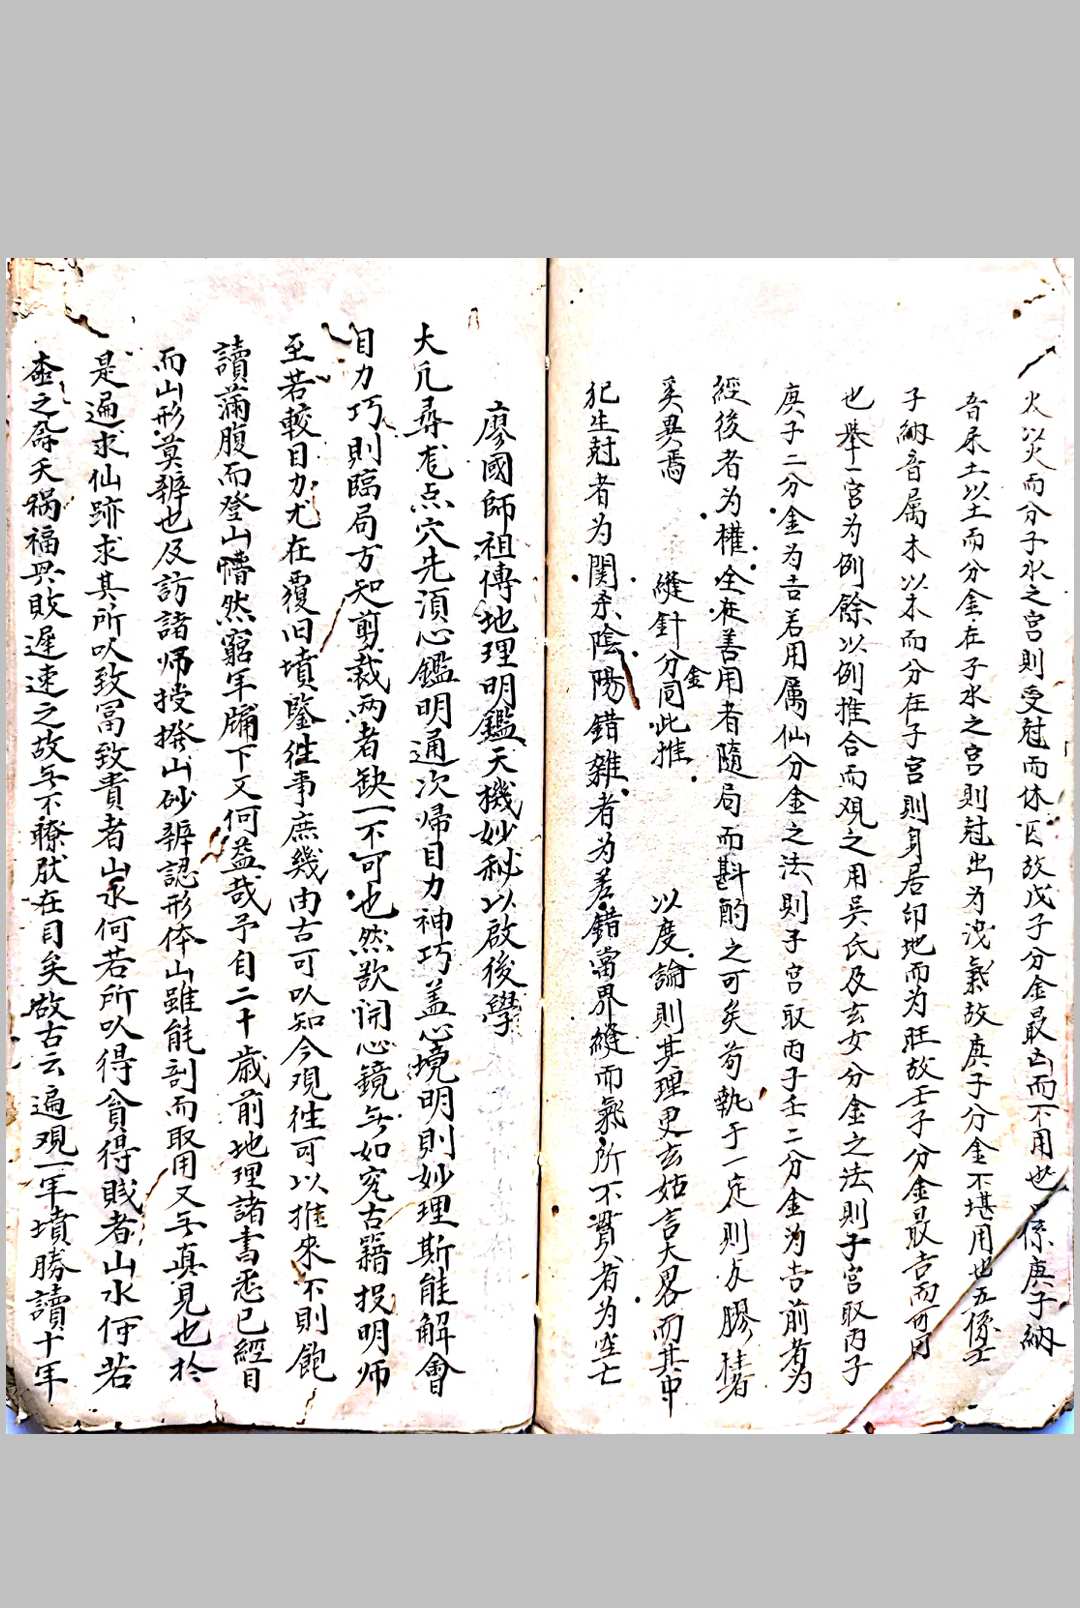 火以火而分子水之宮則受尅而休囚故戊子分金最凶而不用也係庚子納
音屬土以土而分金在子水之宮則尅出为洩氣故庚子分金不堪用也五係壬
子納音属木以木而分在子宮則身居印地而为旺故壬子分金最吉而可用
也举一宮为例餘以例推合而观之用吴氏及玄女分金之法則子宮取丙子
庚子二分金为吉若用属仙分金之法則子宮取丙子壬二分金为吉前者为
經後者为權全在善用者隨局而斟酌之可矣苟執于一定則亦膠柱者
奚異焉 縫針分金同此推 以度論則其理更玄姑言大畧而其中
犯生尅者为関杀陰陽錯雜者为差錯當界縫而氣所不貫者为空亡
廖國師祖傳地理明鑑天機妙秘以啟後學
大凢尋龙点穴先須心鑑明通次帰目力神巧盖心境明則妙理斯能解會
目力巧則臨局方知剪裁两者缺一不可也然欲開心鏡无如究古籍投明师
至若較目力尤在覆旧墳鑒徃事庶幾由古可以知今观徃可以推來不則飽
讀滿腹而登山懵然窮年牖下又何益哉予自二十歲前地理諸書悉已經目
而山形莫辨也及訪諸师授撥山砂辨認形体山雖能剖而取用又无真見也於
是遍求仙跡求其所以致冨致貴者山水何若所以得貧得賎者山水何若
壷之殀夭禍福興敗遲速之故无不瞭然在目矣故古云遍观一年墳勝讀十年